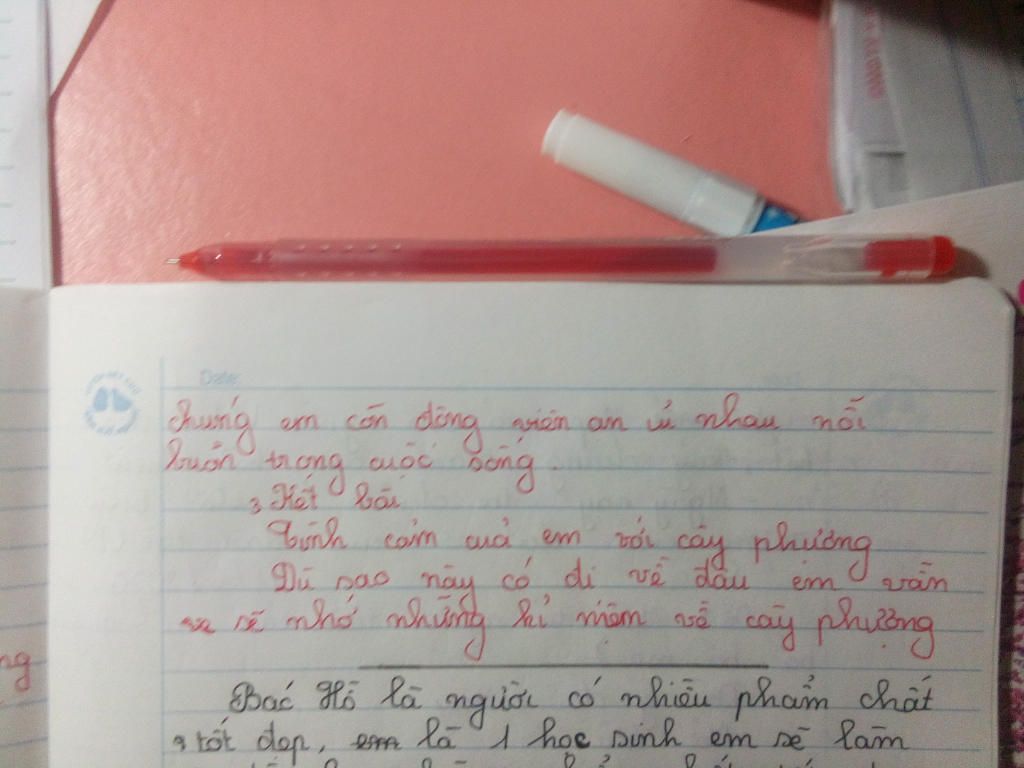 Date:
chúng em còn động viên an ủi nhau nỗi
buồn trong cuộc sống.
3 Kết bài
Tình cảm của em với cây phương
Dù sao này có đi về đâu em vẫn
sẽ nhớ những kỉ niệm về cây phượng
ng
Bác Hồ là người có nhiều phẩm chất
tốt đẹp, em là 1 học sinh em sẽ làm